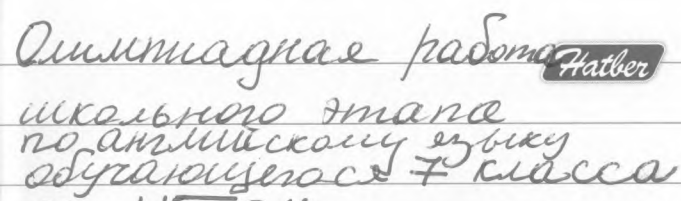 Олимпиадная работа Hatber
школьного этапа
по английскому языку
обучающегося 7 класса